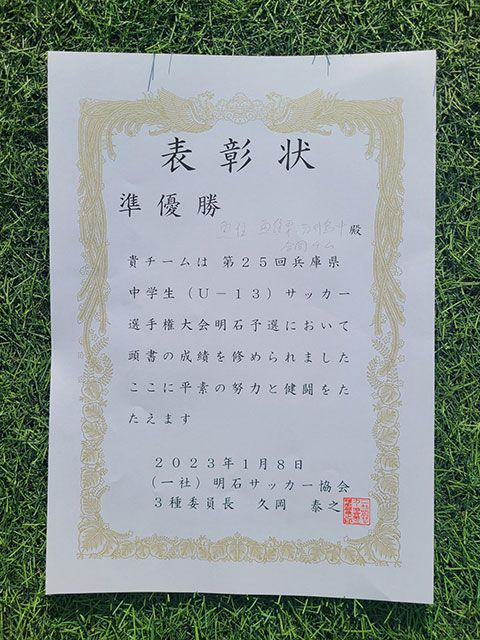 表彰状
準優勝
殿
合同チーム
貴チームは 第25回兵庫県
中学生(U-13)サッカー
選手権大会明石予選において
頭書の成績を修められました
ここに平素の努力と健闘をた
たえます
2023年1月8日
(一社)明石サッカー協会
3種委員長 久岡 泰之